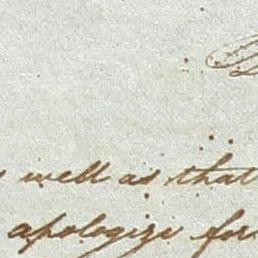 well as that
apologize for